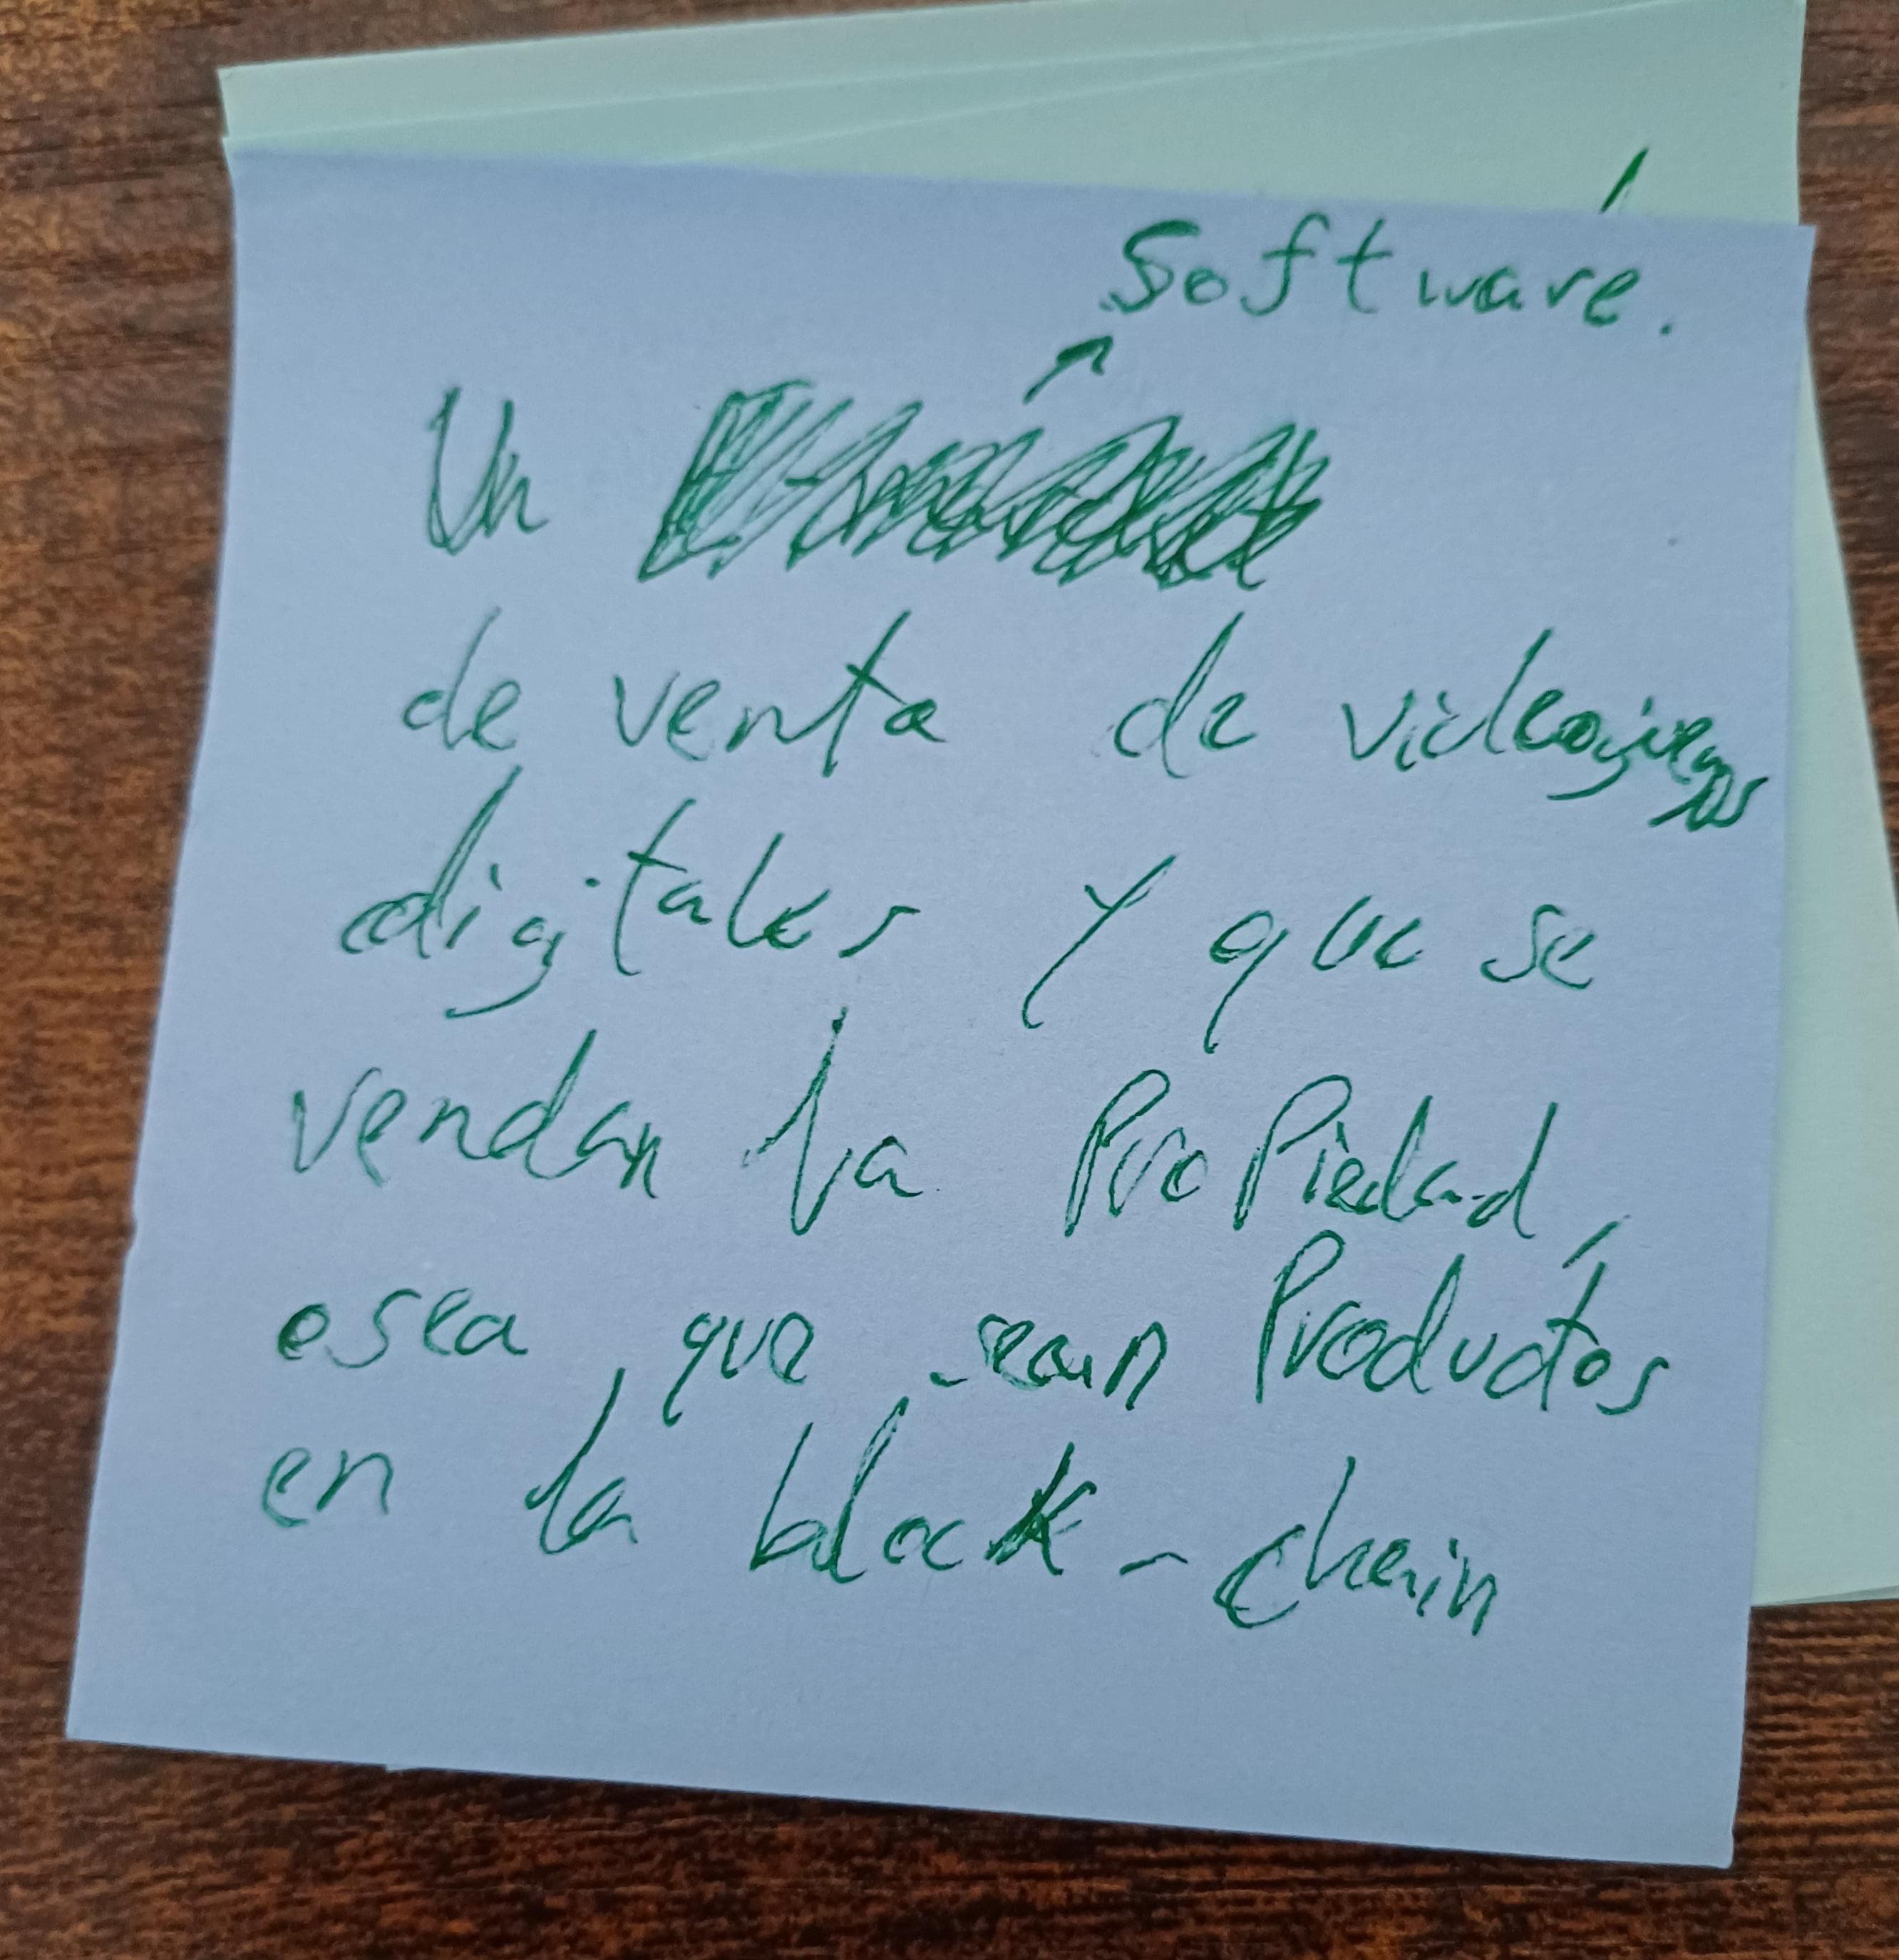 Software.
Un
de venta de videojuegos
digitales y que se
vendan la Propiedad,
osea que sean Productos
en la block-chain